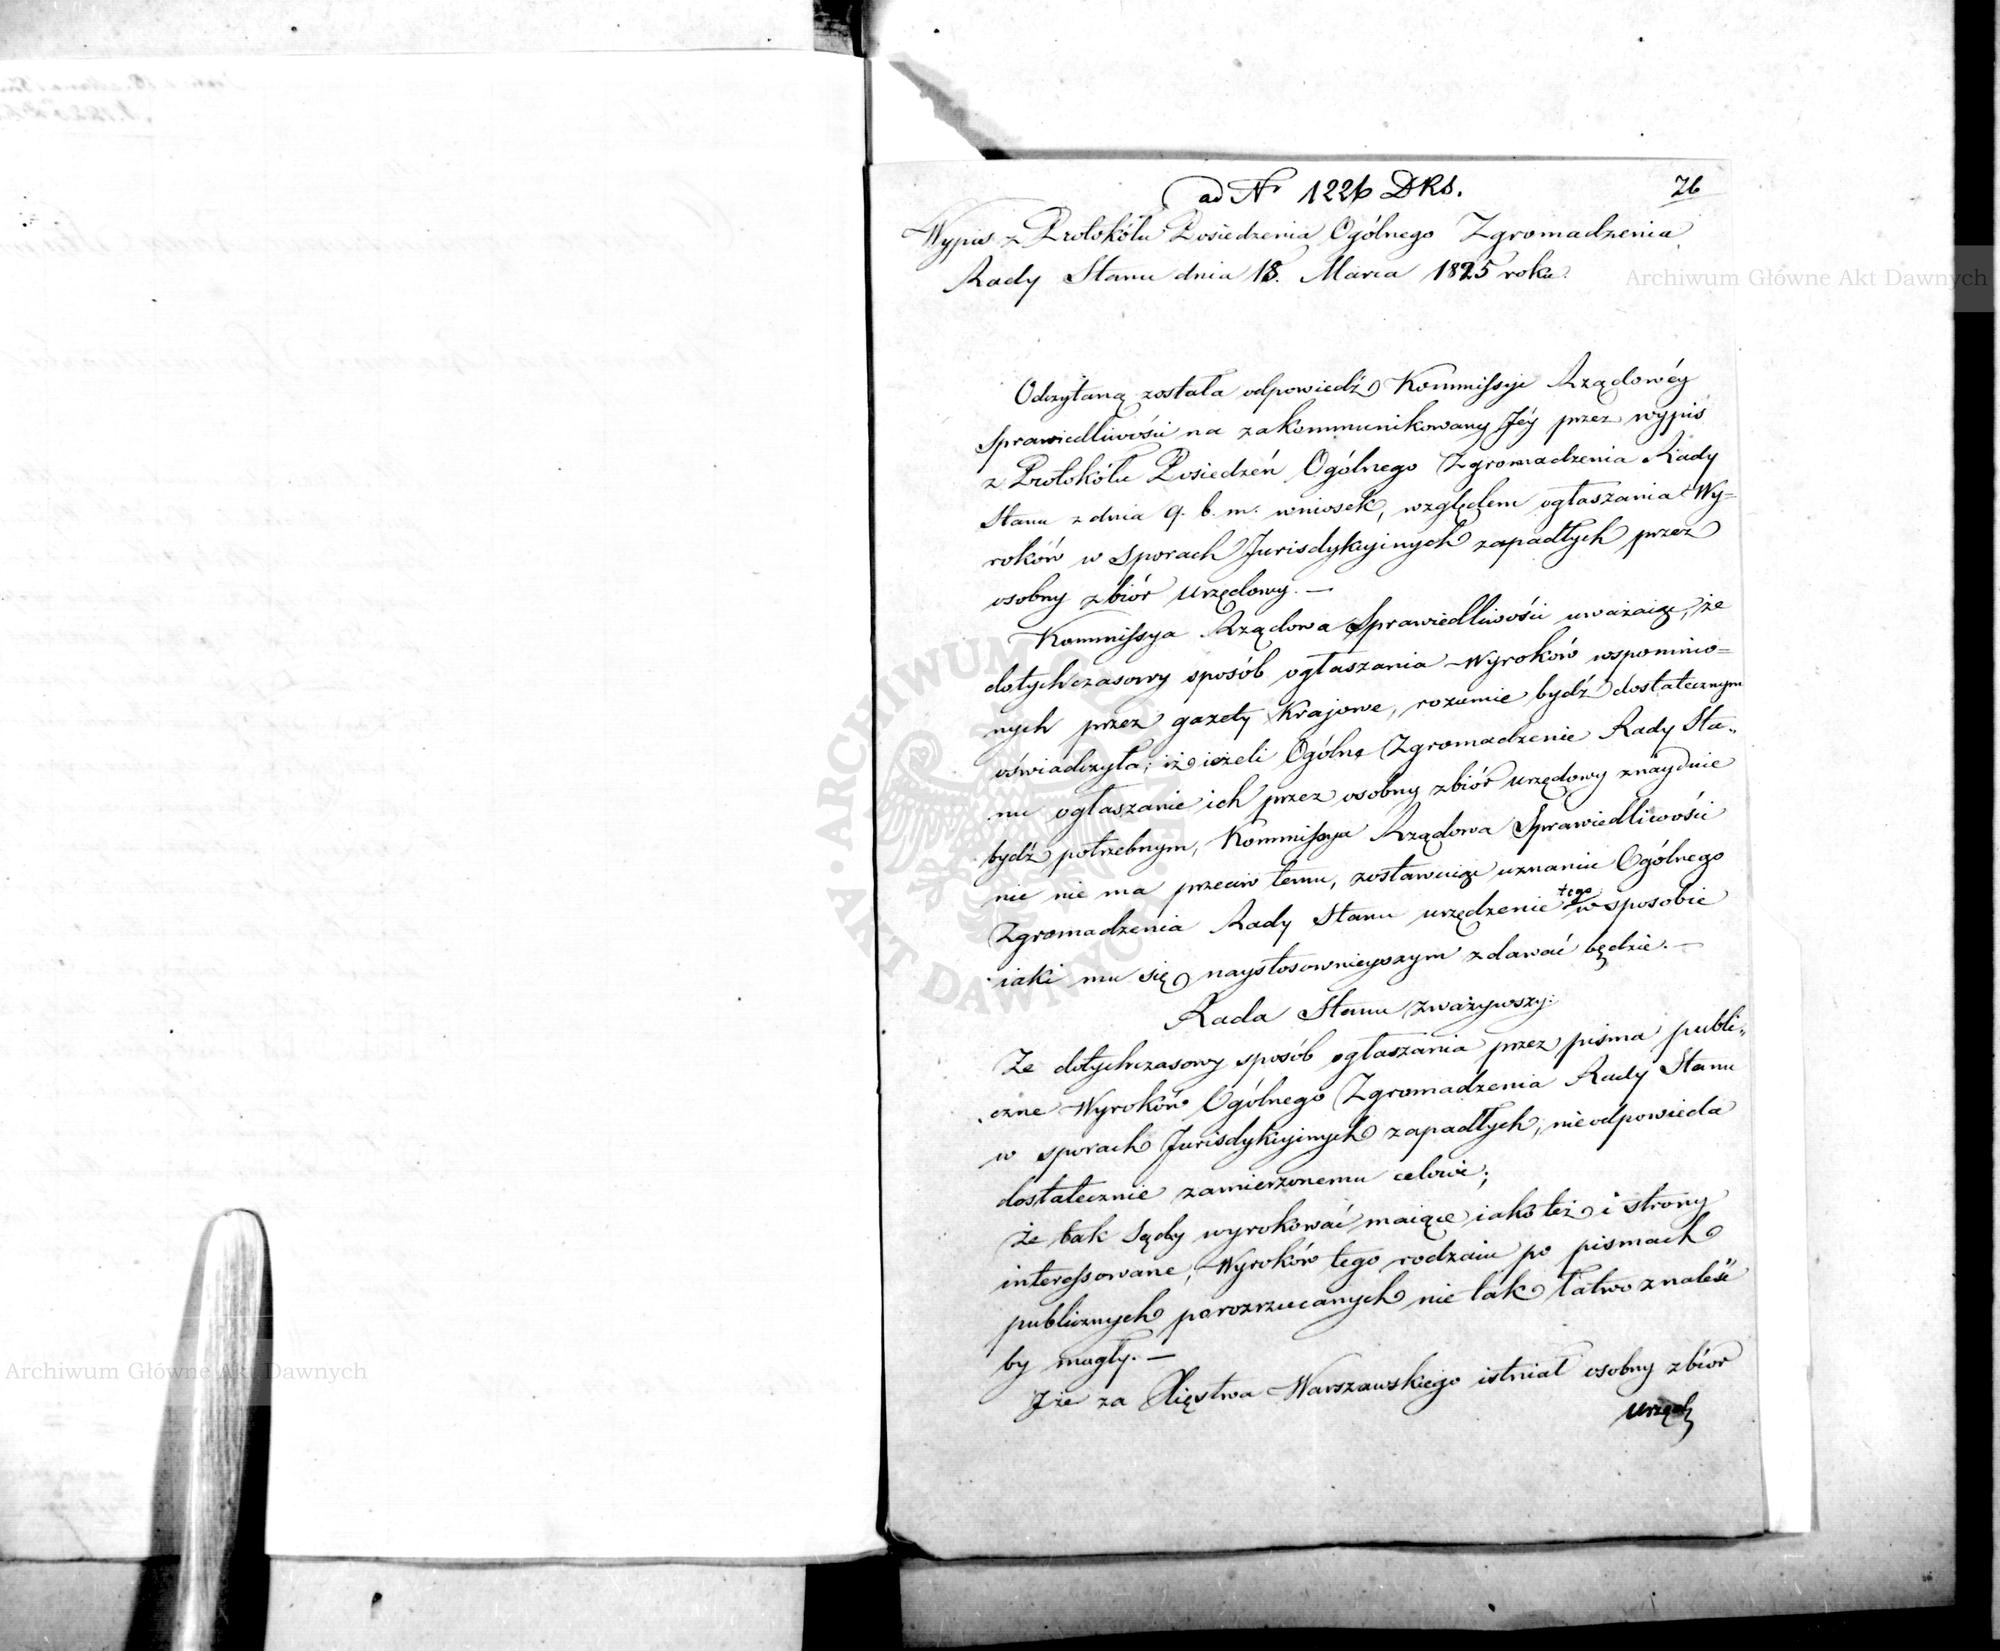 ad Nr 1226 DRS.
76
Wypis z Protokółu Posiedzenia Ogólnego Zgromadzenia
Rady Stanu dnia 18. Marca 1825 roku.
Odczytaną została odpowiedź Kommissyi Rządowéy
Sprawiedliwości na zakommunikowany Jéy przez wypis
z Protokółu Posiedzeń Ogólnego Zgromadzenia Rady
Stanu z dnia 9. b. m. wniosek, względem ogłaszania Wy=
roków w sporach Jurisdykcyinych zapadłych przez
osobny zbiór urzędowy. —
Kommissya Rządowa Sprawiedliwości uważaiąc, że
dotychczasowy sposób ogłaszania Wyroków wspomnio=
nych przez gazety Krajowe, rozumie bydź dostatecznym
oświadczyła; iż ieżeli Ogólne Zgromadzenie Rady Sta„
nu ogłaszanie ich przez osobny zbiór urzędowy znayduie
bydź potrzebnym, Kommissya Rządowa Sprawiedliwości
nic nie ma przeciw temu, zostawuiąc uznaniu Ogólnego
Zgromadzenia Rady Stanu urzędzenie tego w sposobie
iaki mu się naystosownieyszym zdawać będzie. —
Rada Stanu zważywszy:
Że dotychczasowy sposób ogłaszania przez pisma publi„
czne Wyroków Ogólnego Zgromadzenia Rady Stanu
w sporach Jurisdykcyinych zapadłych, nieodpowieda
dostatecznie zamierzonemu celowi;
Że tak Sądy wyrokować maiące iako też i strony
interessowane, Wyroków tego rodzaiu po pismach
publicznych porozrzucanych nie tak łatwo znaleść
by mogły. —
Jże za Xięstwa Warszawskiego istniał osobny zbiór
urzęd
Archiwum Główne Akt Dawnych
Archiwum Główne Akt Dawnych
ARCHIWUM GŁÓWNE AKT DAWNYCH